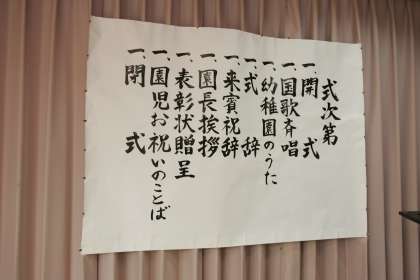 式次第
一、開式
一、国歌斉唱
一、幼稚園のうた
一、式辞
一、来賓祝辞
一、園長挨拶
一、表彰状贈呈
一、園児お祝いのことば
一、閉式